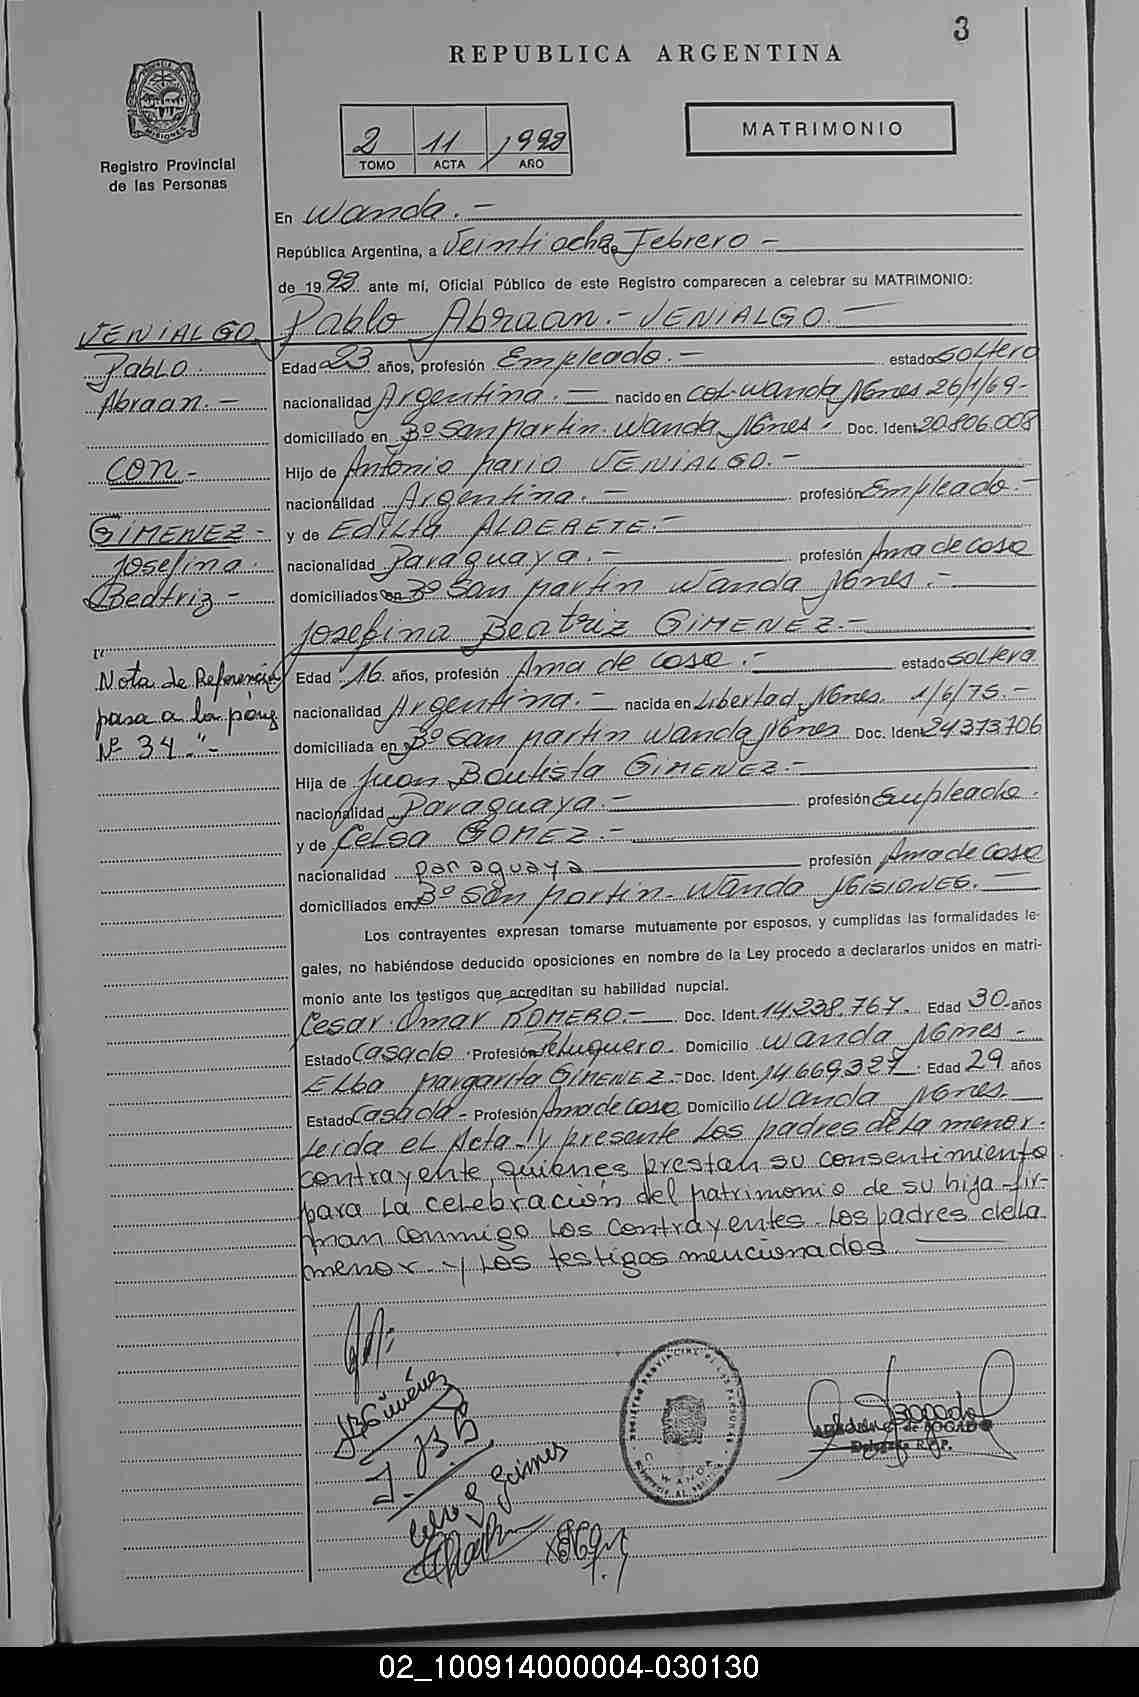 3
REPUBLICA ARGENTINA
MISIONES
Registro Provincial
de las Personas
2 11 1992
TOMO ACTA AÑO
MATRIMONIO
En Wanda.-
República Argentina, a Veintiocho de Febrero -
de 1992 ante mí, Oficial Público de este Registro comparecen a celebrar su MATRIMONIO:
VENIALGO Pablo Abraan.- VENIALGO.-
Pablo. Edad 23 años, profesión Empleado.- estado soltero
Abraan.- nacionalidad Argentina.- nacido en Col. Wanda Mnes 26/1/69-
domiciliado en Bº San Martin. Wanda Mnes - Doc. Ident. 20.806.008
con- Hijo de Antonio Mario VENIALGO.-
nacionalidad Argentina.- profesión Empleado.-
GIMENEZ- y de Edilta ALDERETE.-
Josefina. nacionalidad Paraguaya.- profesión Ama de casa
Beatriz- domiciliados en Bº San Martin Wanda Mnes.-
Josefina Beatriz GIMENEZ.-
Nota de Referencia Edad 16 años, profesión Ama de casa.- estado soltera
pasa a la pág nacionalidad Argentina.- nacida en Libertad Mnes. 1/6/75.-
Nº 34.-"- domiciliada en Bº San Martin Wanda Mnes Doc. Ident 24373.706
Hija de Juan Bautista GIMENEZ.-
nacionalidad Paraguaya.- profesión Empleado.
y de Celsa GOMEZ.-
nacionalidad paraguaya profesión Ama de casa
domiciliados en Bº San Martin- Wanda MISIONES.-
Los contrayentes expresan tomarse mutuamente por esposos, y cumplidas las formalidades le-
gales, no habiéndose deducido oposiciones en nombre de la Ley procedo a declararlos unidos en matri-
monio ante los testigos que acreditan su habilidad nupcial.
Cesar Omar ROMERO.- Doc. Ident. 14.238.767. Edad 30 años
Estado Casado Profesión Peluquero. Domicilio Wanda Mnes-
Elba Margarita GIMENEZ.- Doc. Ident. 14.669.327 Edad 29 años
Estado Casada- Profesión Ama de casa Domicilio Wanda Mnes.
Leida el Acta y presente Los padres de la menor.
contrayente, quienes prestan su consentimiento
para La celebración del matrimonio de su hija fir-
man conmigo Los contrayentes. Los padres de la
menor. y Los testigos mencionados
JBGiménez
J. B. G.
REGISTRO PROVINCIAL DE LAS PERSONAS
WANDA
Delegada R.P.P.
02_100914000004-030130